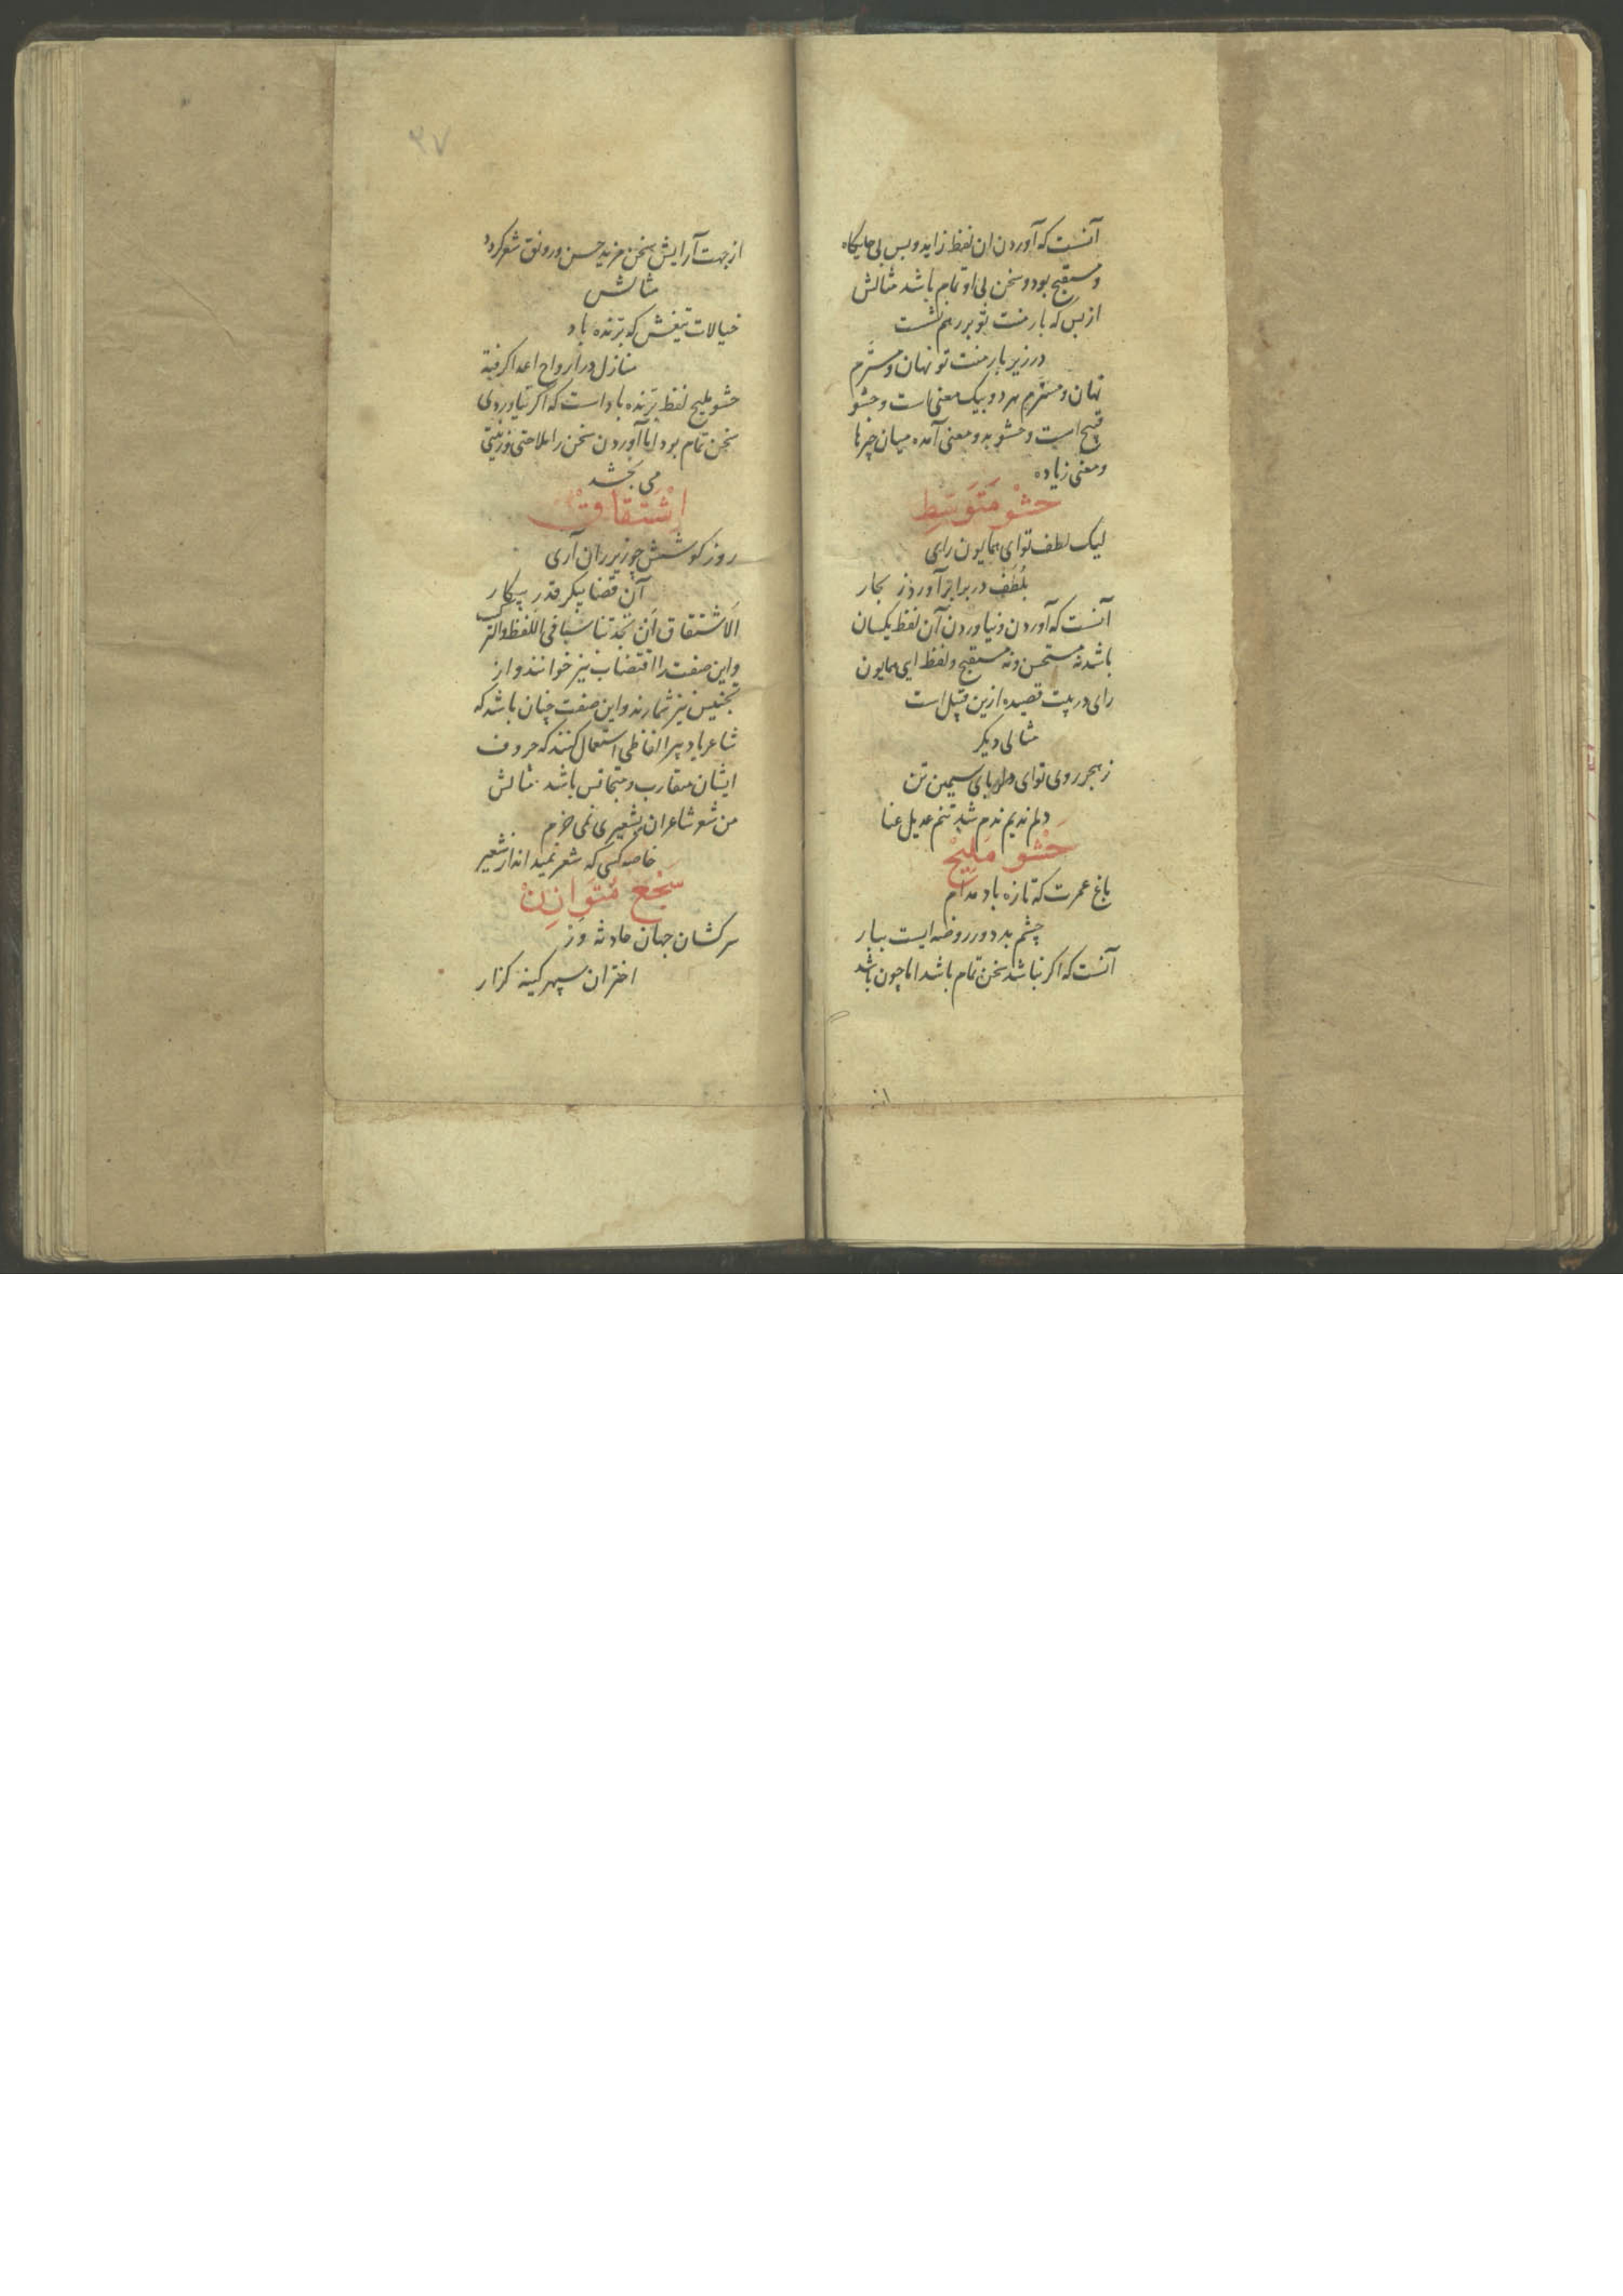 آنست که آوردن ان لفظ زاید و بس بی جایگاه
و مستقبح بود و سخن بی او تمام باشد مثالش
از بس که بار منت تو بر رهم نشست
در زیر بار منت تو نهان و مسترم
نهان و مستر هر دو بیک معنی است و حشو
قبیح است و حشو بد و معنی آمده میان چیزها
و معنی زیاده
حَشْو مُتَوَسِط
لیک لطف تو ای همایون رای
بلُطَف در برابر آورد ز بحار
آنست که آوردن و نیاوردن آن لفظ یکسان
باشد نه مستحسن و نه مستقبح و لفظ ای همایون
رای در بیت قصیده ازین قبیل است
مثالی دیکر
ز هجر روی تو ای دلربای سیمین تن
دلم ندیم ندم شد تنم عدیل عنا
حَشْو مَلِیْحْ
باغ عمرت که تازه باد مدام
چشم بد دور روضه ایست ببار
آنست که اکر نباشد سخن تمام باشد اما چون باشد
از
۲۷
از جهت آرایش سخن مزید حسن و رونق شعر کردد
مثالش
خیالات تیغش که برّنده باد
منازل در ارواح اعدا کرفته
حشو ملیح لفظ برّنده باد است که اکر نیاوردی
سخن تمام بود اما آوردن سخن را ملاحتی و زینتی
می بخشد
اِشْتِقاقْ
روز کوشش چو زیر ران آری
آن قضا پیکر قدر پیکار
اَلاشتقاق اَن تجد تناسُبا فی اللّفظ والترکیب
و این صفت را اقتضاب نیز خوانند و از
تجنیس نیز شمارند و این صفت چنان باشد که
شاعر یا دبیر الفاظی استعمال کنند که حروف
ایشان متقارب و متجانس باشد مثالش
من شعر شاعران بشعیری نمی خرم
خاصه کسی که شعر نمیداند از شعیر
سَجْع مُتَوازِنْ
سرکشان جهان حادثه ور
اختران سپهر کینه کزار